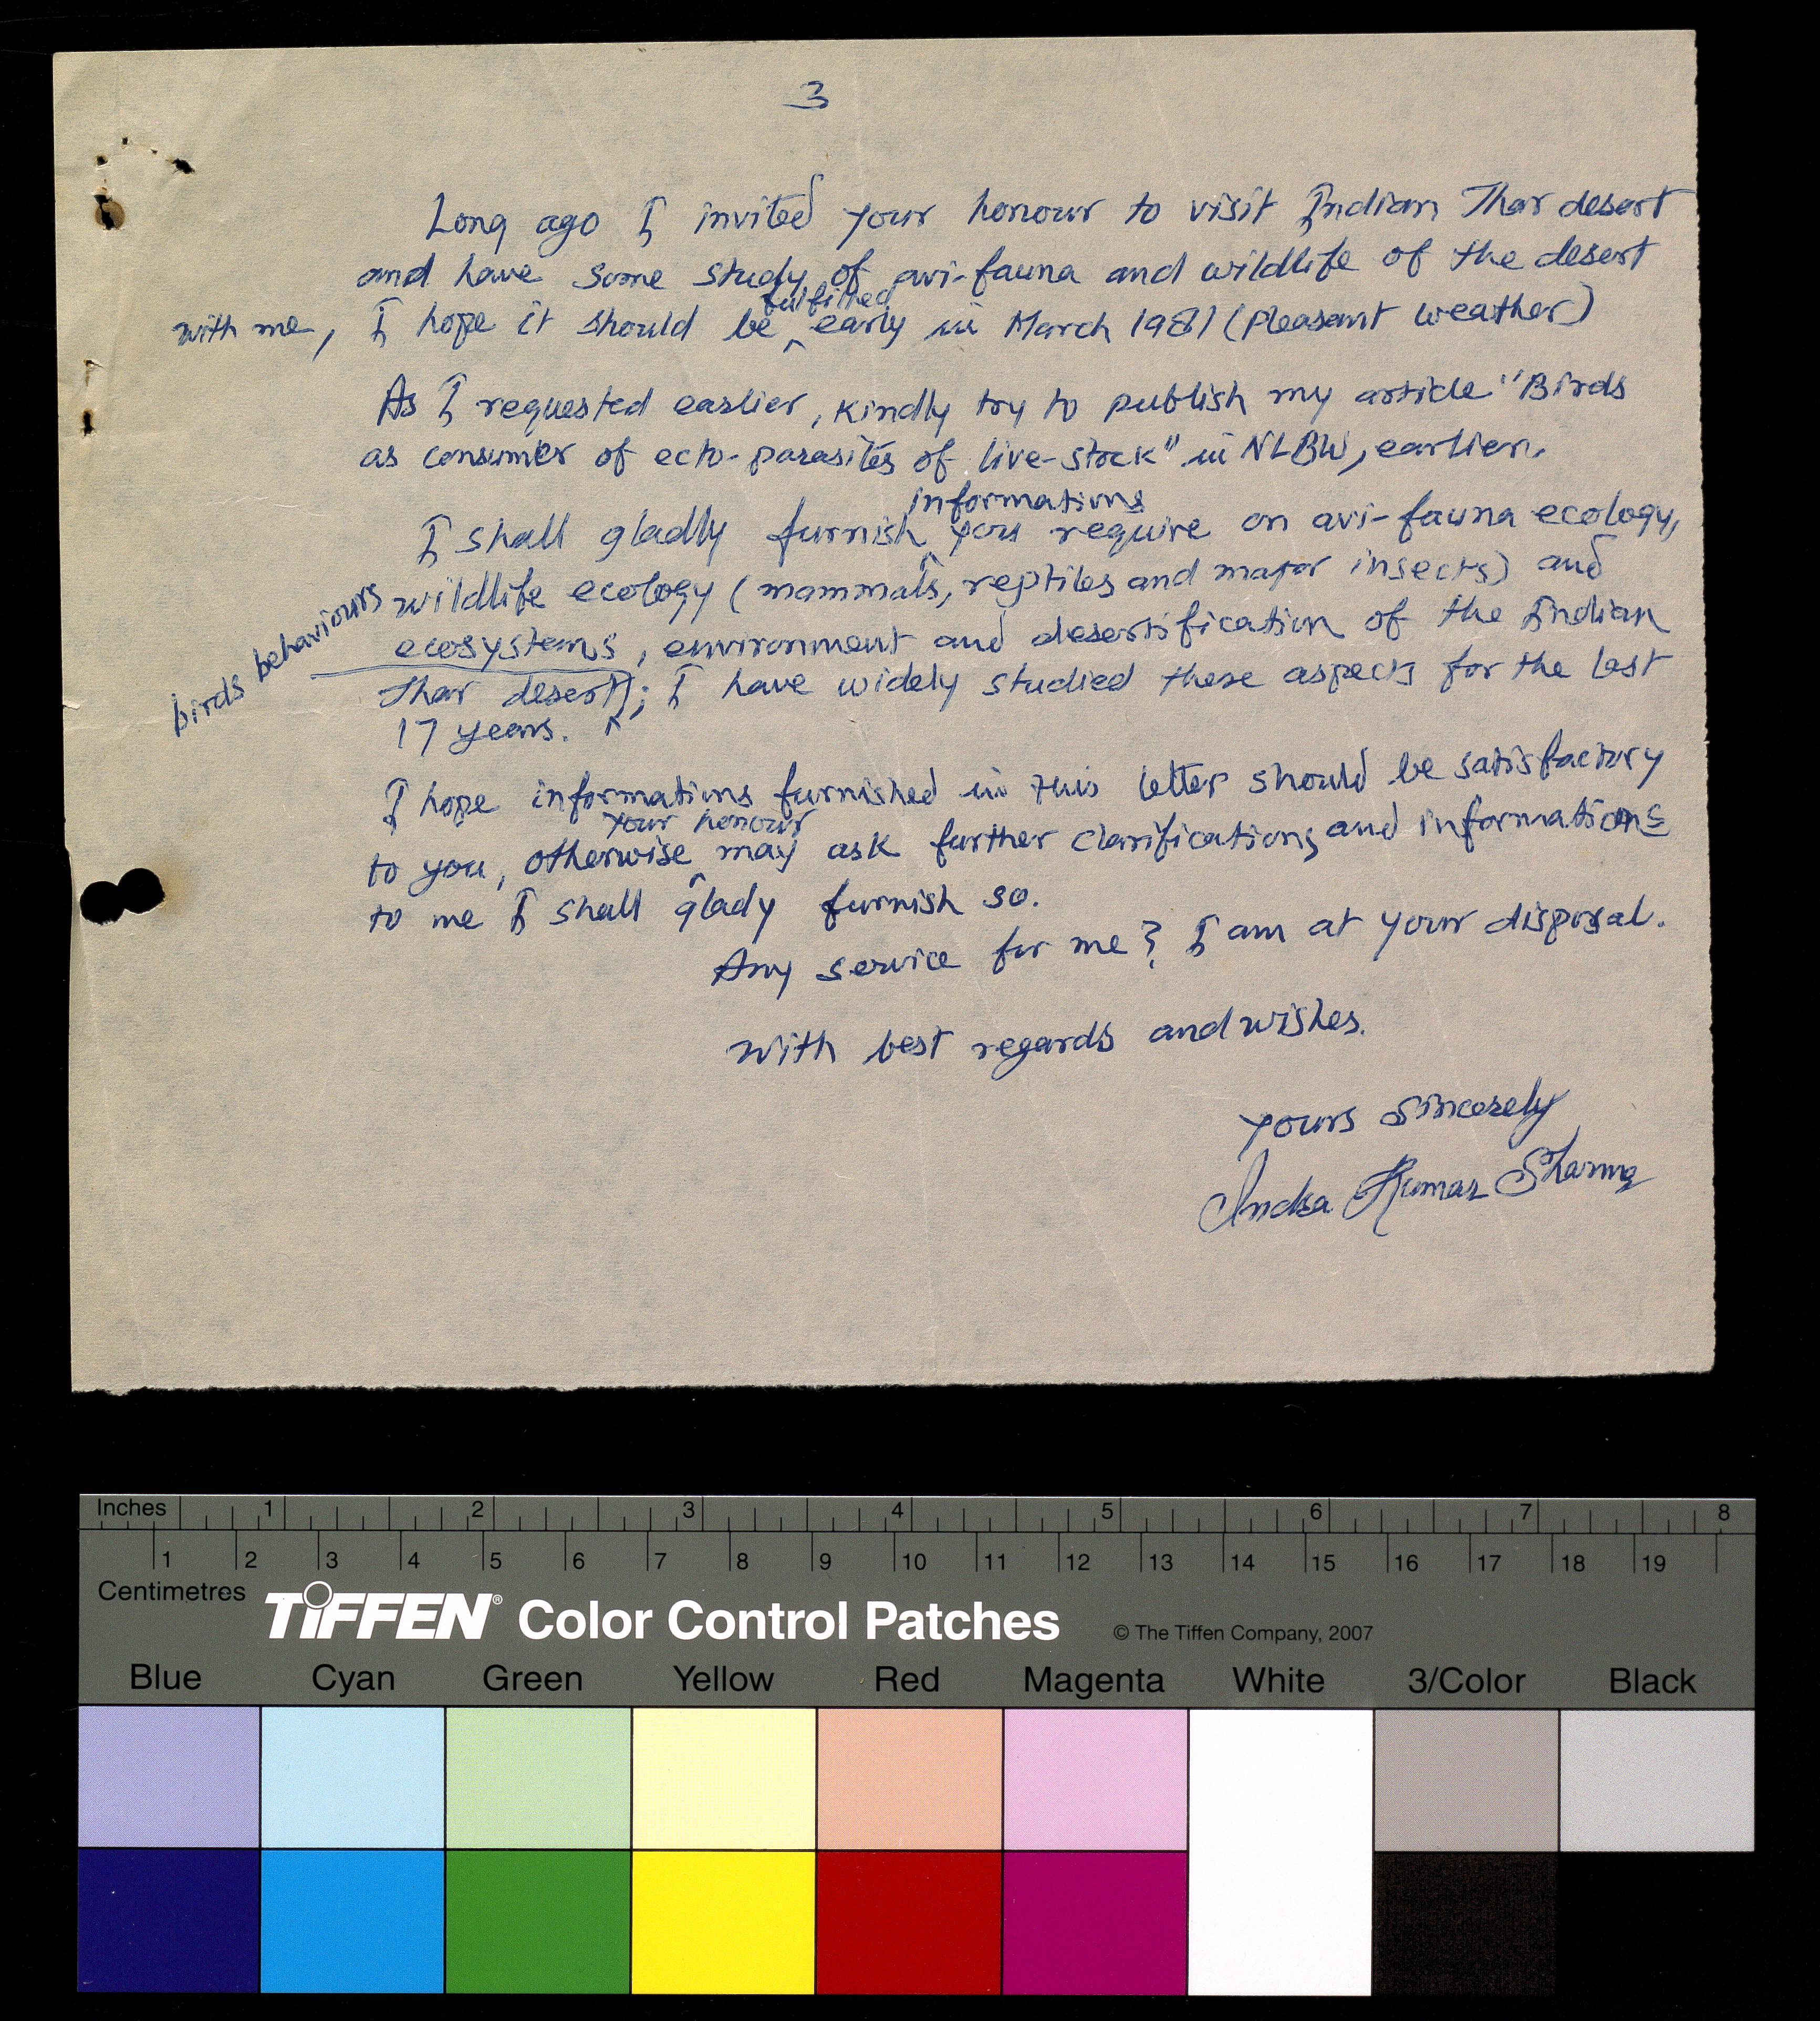 3
Long ago I invited your honour to visit Indian Thar desert
and have some study of avi-fauna and wildlife of the desert
fulfilled
with me, I hope it should be ^ early in March 1981 (Pleasant weather)
As I requested earlier, kindly try to publish my article "Birds
as consumer of ecto-parasites of live-stock" in NLBW, earlier.
informations
I shall gladly furnish ^ you require on avi-fauna ecology,
wildlife ecology (mammals, reptiles and major insects) and
birds behaviours
ecosystems, environment and desertification of the Indian
Thar desert; I have widely studied these aspects for the last
17 years. ^
I hope informations furnished in this letter should be satisfactory
your honour
to you, otherwise ^ may ask further clarifications and informations
to me I shall glady furnish so.
Any service for me? I am at your disposal.
With best regards and wishes.
Yours Sincerely
Indra Kumar Sharma
Inches 1 2 3 4 5 6 7 8
1 2 3 4 5 6 7 8 9 10 11 12 13 14 15 16 17 18 19
Centimetres
TIFFEN® Color Control Patches © The Tiffen Company, 2007
Blue Cyan Green Yellow Red Magenta White 3/Color Black